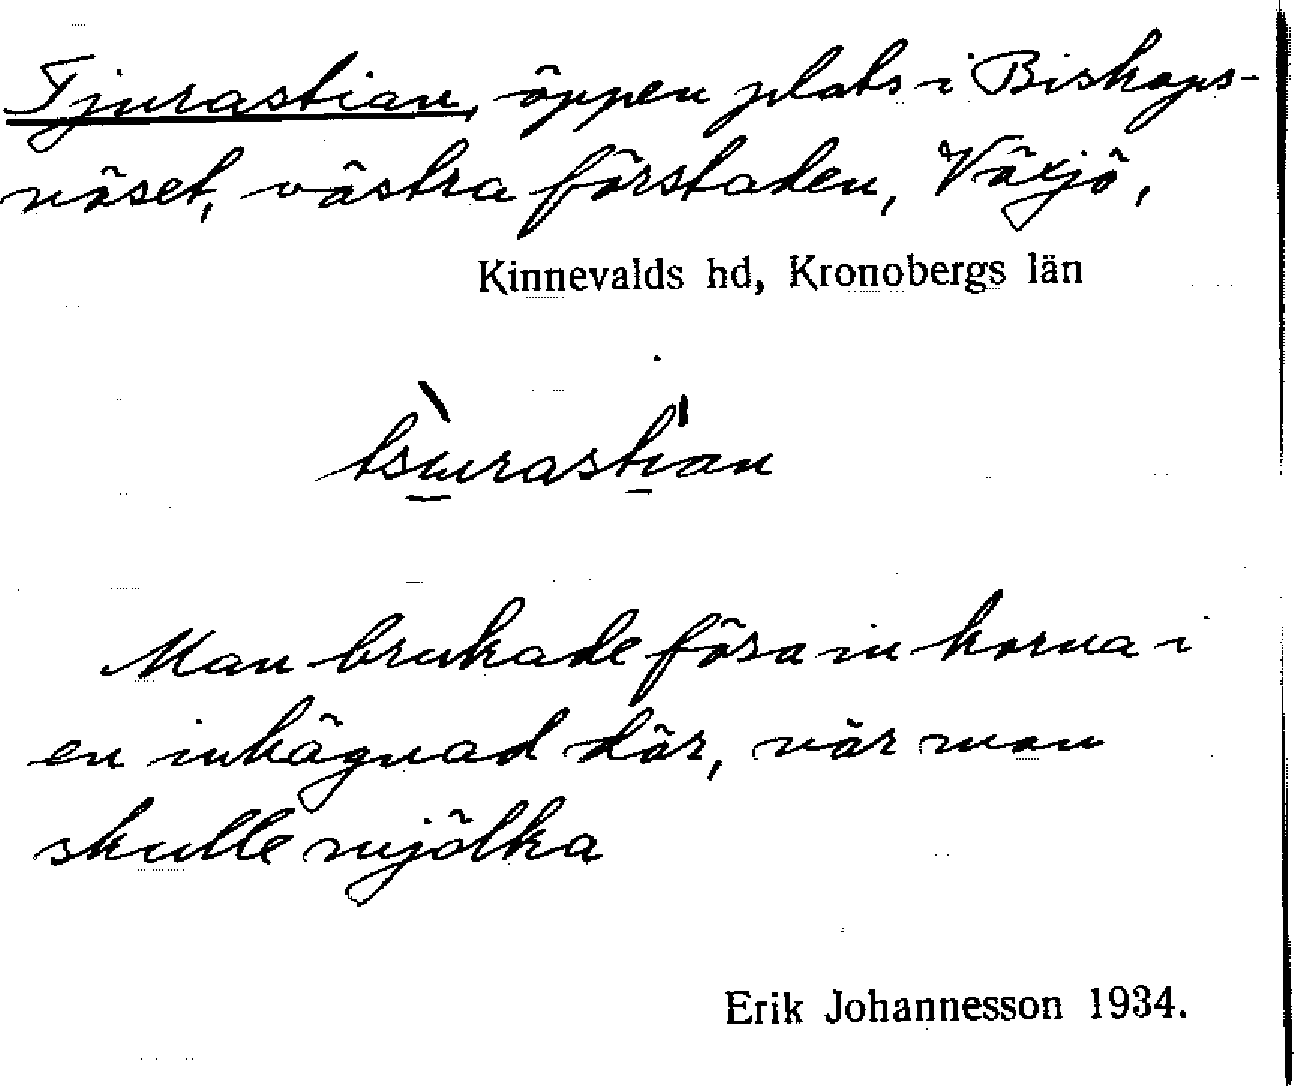 Tjurastian, öppen plats i Biskops-
näset, västra förstaden, Växjö,
Kinnevalds hd, Kronobergs län
tsu̲rasti̲an
Man brukade fösa in korna i
en inhägnad där, när man
skulle mjölka
Erik Johannesson 1934.